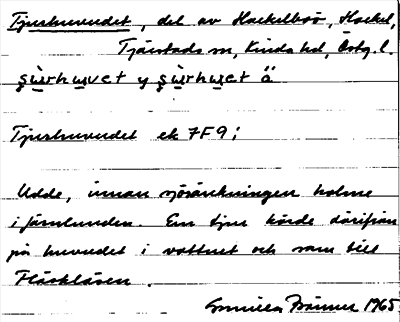 Tjurhuvudet, del av Hackelboö, Hackel,
Tjärstads sn, Kinda hd, Östg. l.
şùrhuvet y şùrhuvet ä
Tjurhuvudet ek 7F9;
Udde, innan sjösänkningen holme
i Järnlunden. En tjur körde därifrån
på huvudet i vattnet och sam till
Fläsklösen.
Gunilla Främer 1965